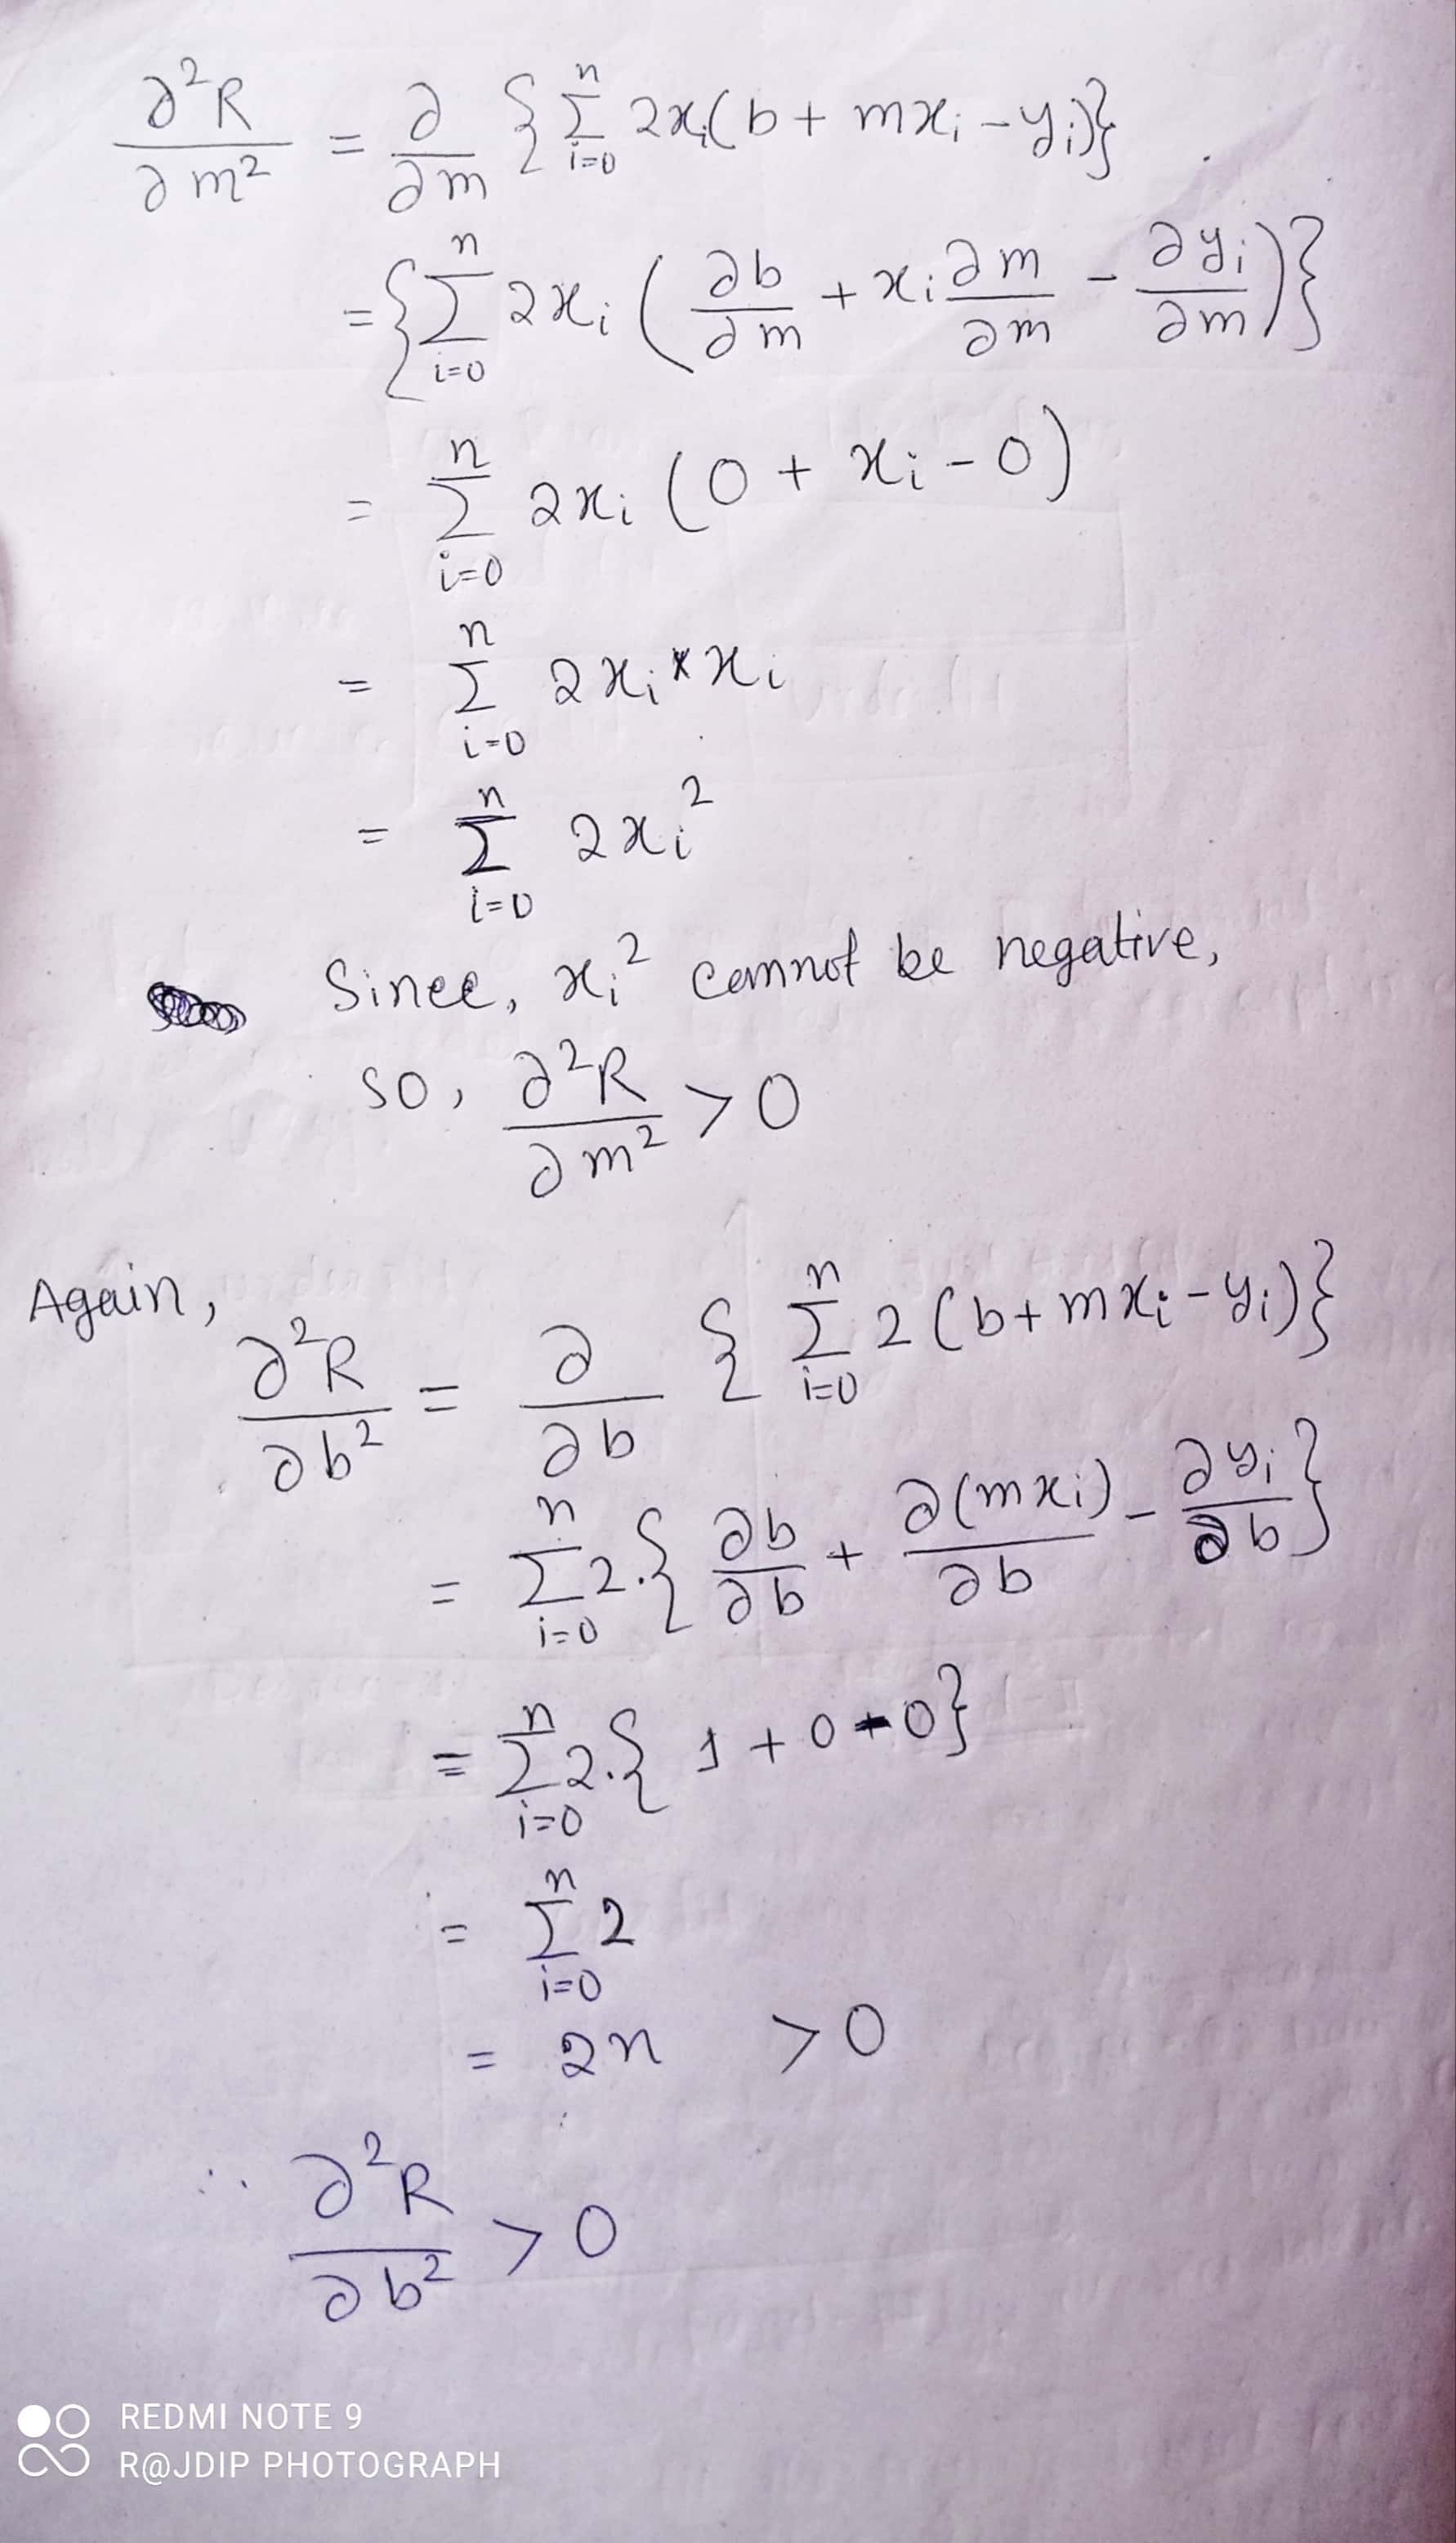 ∂²R/∂m² = ∂/∂m {∑ⁿᵢ₌₀ 2xᵢ(b + mxᵢ - yᵢ)}
= {∑ⁿᵢ₌₀ 2xᵢ (∂b/∂m + xᵢ ∂m/∂m - ∂yᵢ/∂m)}
= ∑ⁿᵢ₌₀ 2xᵢ (0 + xᵢ - 0)
= ∑ⁿᵢ₌₀ 2xᵢ * xᵢ
= ∑ⁿᵢ₌₀ 2xᵢ²
Since, xᵢ² cannot be negative,
so, ∂²R/∂m² > 0
Again,
∂²R/∂b² = ∂/∂b {∑ⁿᵢ₌₀ 2(b + mxᵢ - yᵢ)}
= ∑ⁿᵢ₌₀ 2.{∂b/∂b + ∂(mxᵢ)/∂b - ∂yᵢ/∂b}
= ∑ⁿᵢ₌₀ 2.{1 + 0 - 0}
= ∑ⁿᵢ₌₀ 2
= 2n > 0
∴ ∂²R/∂b² > 0
REDMI NOTE 9
R@JDIP PHOTOGRAPH